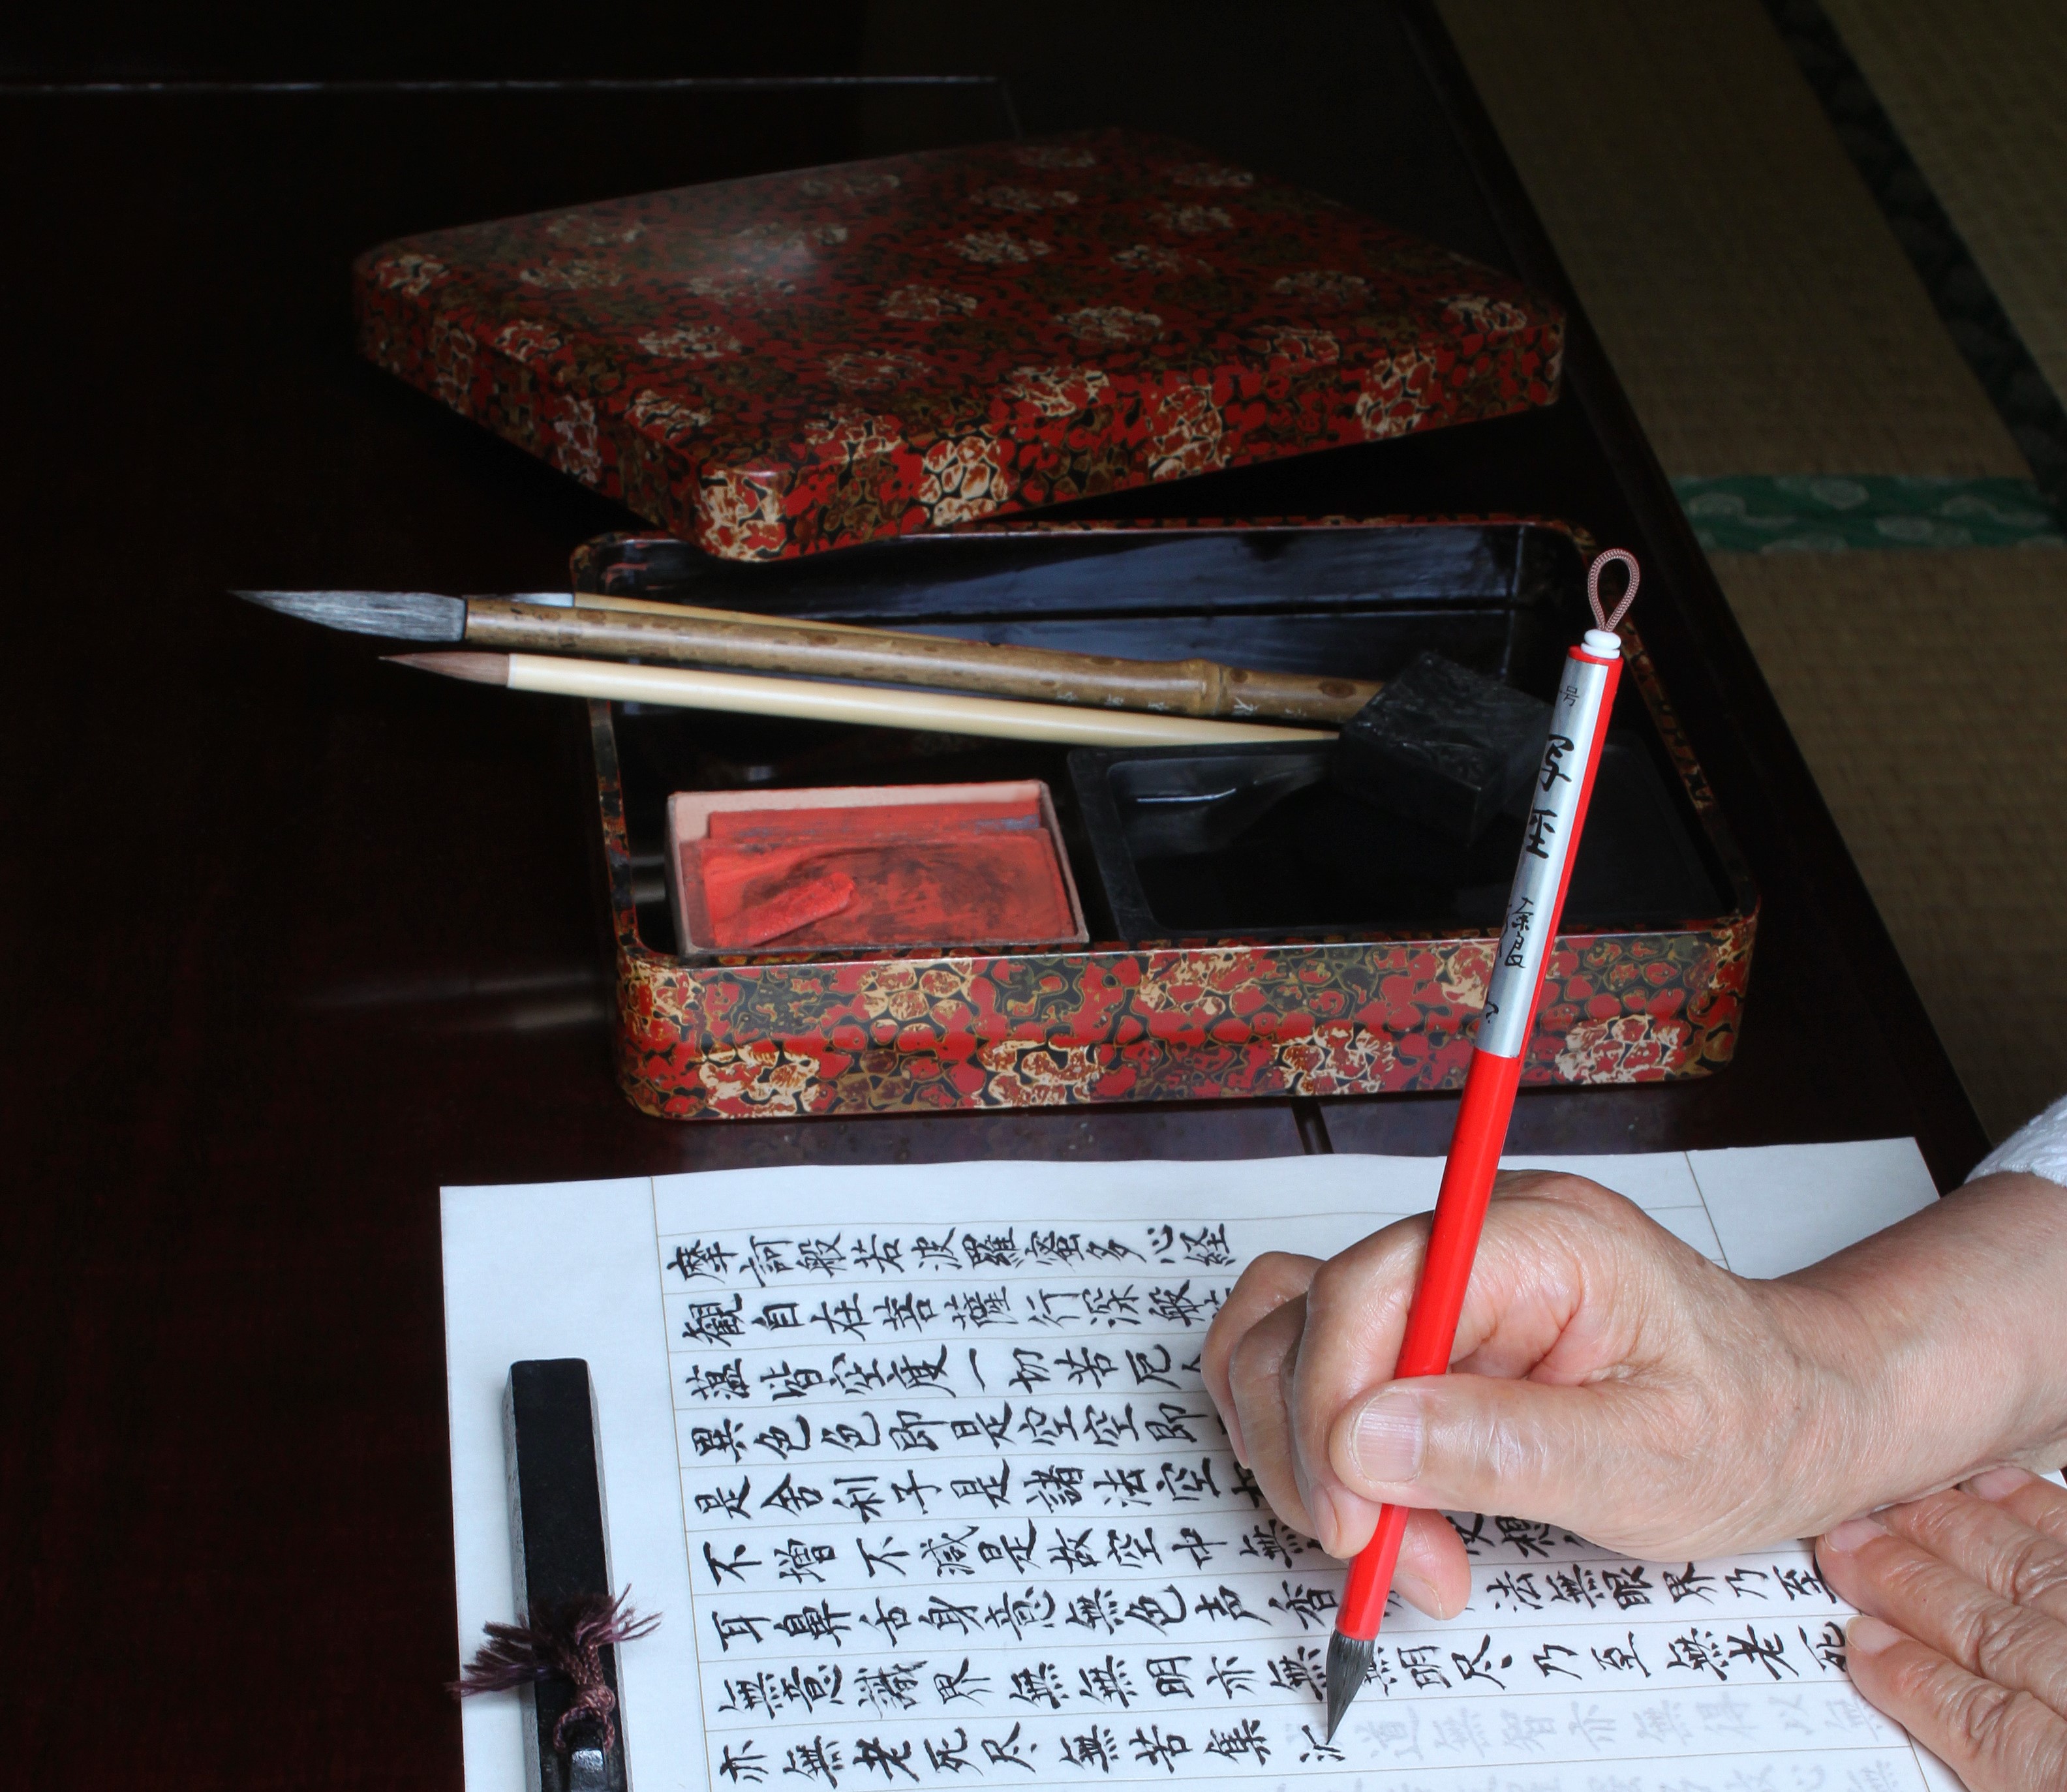 摩訶般若波羅蜜多心経
観自在菩薩行深般
蘊皆空度一切苦厄
異色色即是空空即
是舎利子是諸法空
不増不減是故空中無 想
耳鼻舌身意無色声香 法無眼界乃至
無意識界無無明亦無無明尽乃至無老死
亦無老死尽無苦集 道無智亦無得以無
号 写経